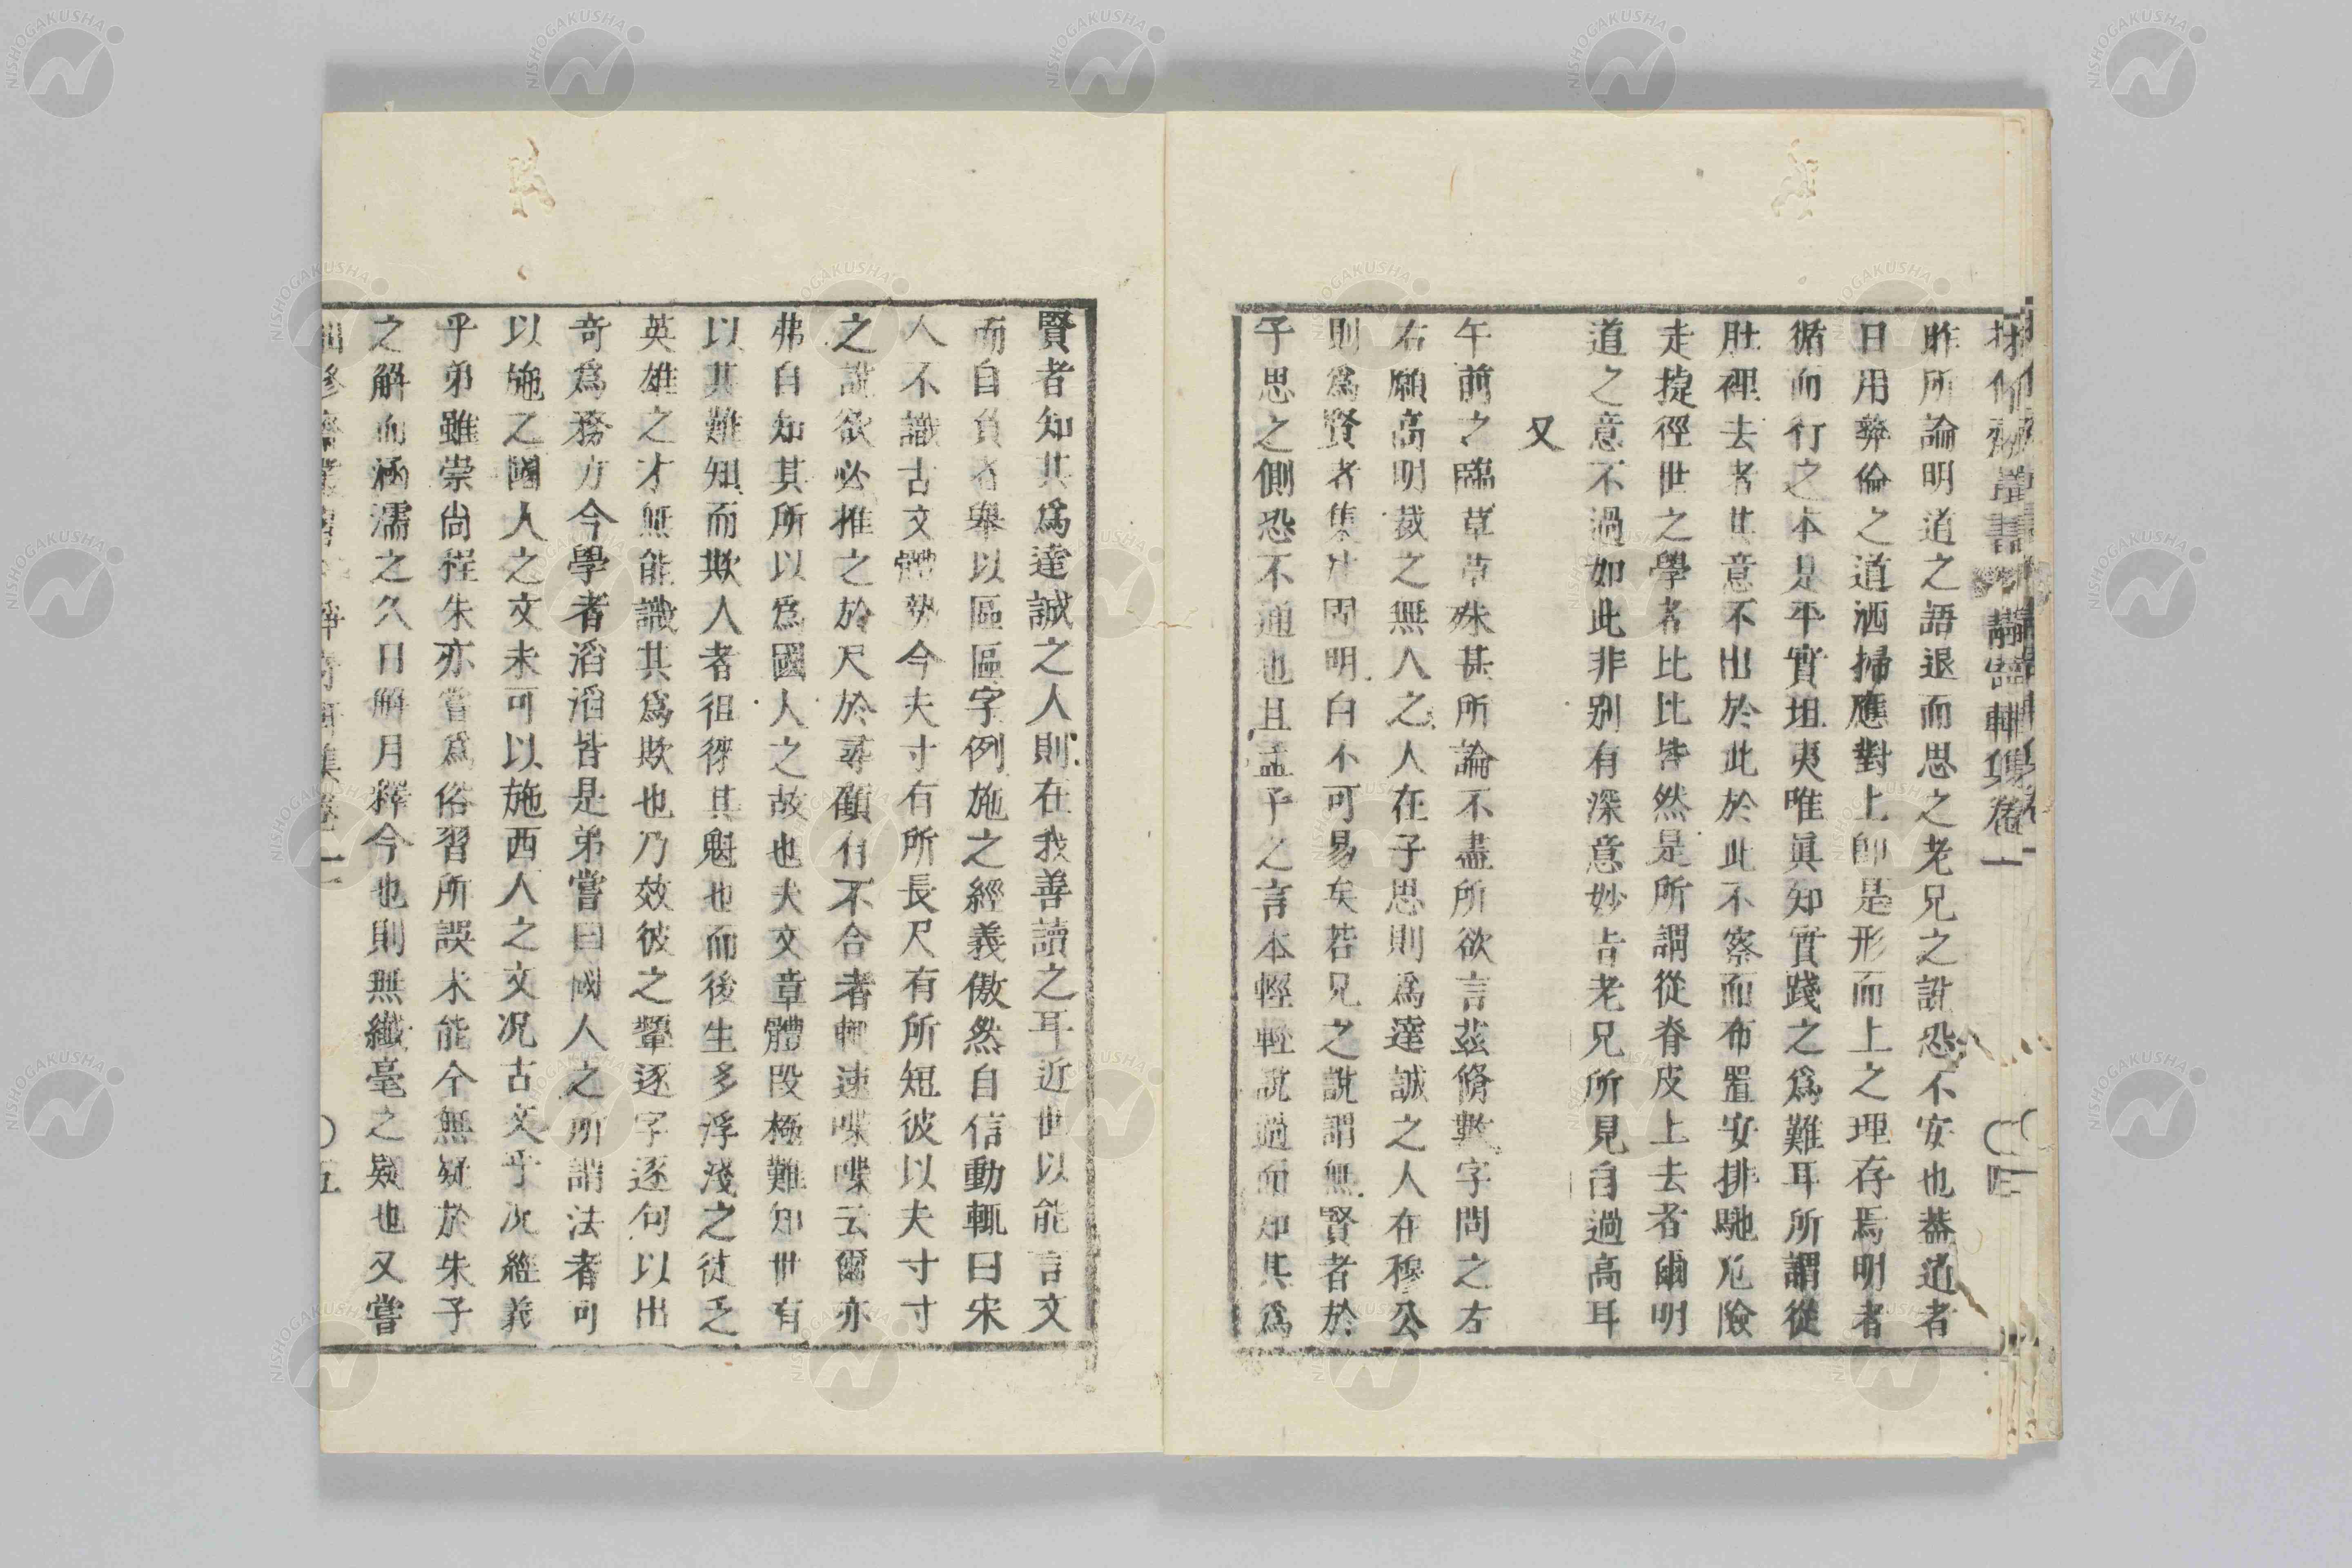 昨所論明道之語退而思之老兄之說恐不安也葢道者
日用彛倫之道洒掃應對上卽是形而上之理存焉明者
循而行之本是平實坦夷唯眞知實踐之爲難耳所謂從
肚裡去者其意不出於此於此不察而布置安排馳危險
走捷徑世之學者比比皆然是所謂從脊皮上去者爾明
道之意不過如此非別有深意妙旨老兄所見自過高耳
又
午前之臨草草殊甚所論不盡所欲言茲脩數字問之左
右願高明裁之無人之人在子思則爲達誠之人在穆公
則爲賢者集註固明白不可易矣若兄之說謂無賢者於
子思之側恐不通也且孟子之言本輕輕說過而知其爲
賢者知其爲達誠之人則在我善讀之耳近世以能言文
而自負者舉以區區字例施之經義傲然自信動輒曰宋
人不識古文體勢今夫寸有所長尺有所短彼以夫寸寸
之說欲必推之於尺於尋顧有不合者輒連喋喋云爾亦
弗自知其所以爲國人之故也夫文章體段極難知世有
以其難知而欺人者徂徠其魁也而後生多浮淺之徒乏
英雄之才無能識其爲欺也乃效彼之顰逐字逐句以出
奇爲務方今學者滔滔皆是弟嘗曰國人之所謂法者可
以施之國人之文未可以施西人之文况古文乎次經義
乎弟雖崇尙程朱亦嘗爲俗習所誤未能全無疑於朱子
之解而涵濡之久日解月釋今也則無纖毫之疑也又嘗